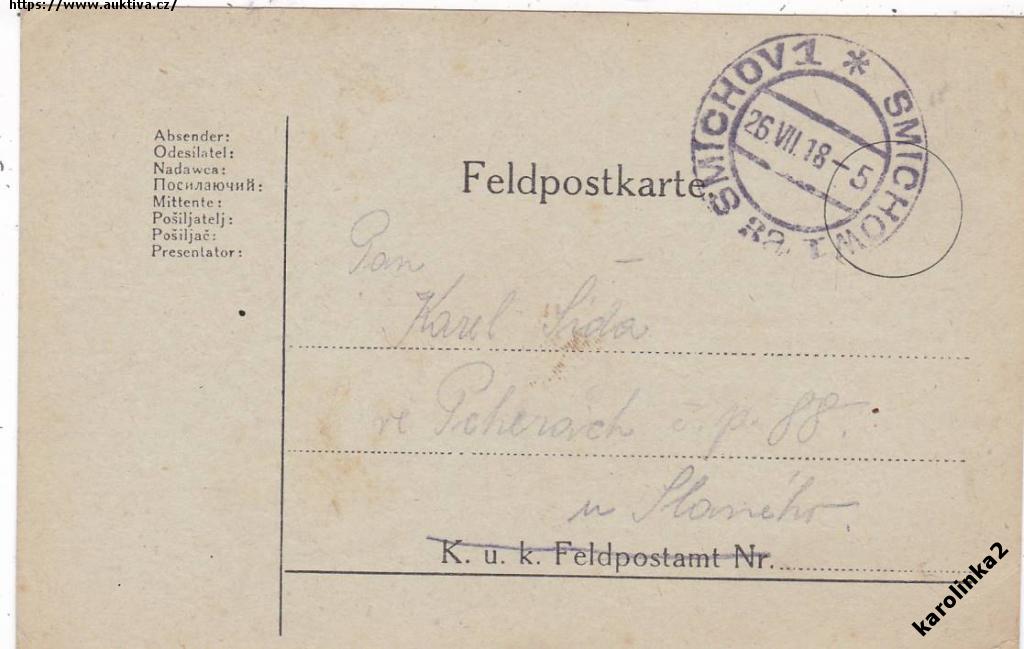 https://www.auktiva.cz/
SMÍCHOV 1 * SMICHOW 1
26.VII.18-5
Absender:
Odesílatel:
Nadawca:
Посилаючий:
Mittente:
Pošiljatelj:
Pošiljač:
Presentator:
Feldpostkarte.
Pan
Karel Sída
ve Pcherách č.p. 88.
u Slaného.
K. u. k. Feldpostamt Nr.
karolinka2